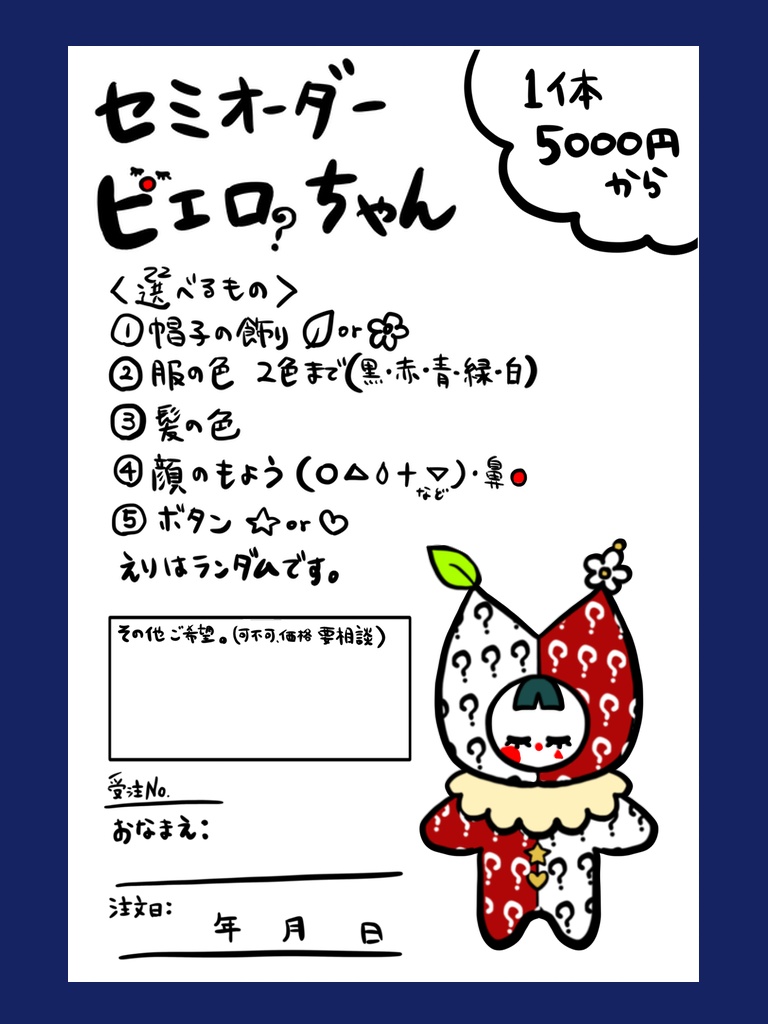 セミオーダー
ピエロ?ちゃん
1体
5000円
から
<選べるもの>
①帽子の飾り or
②服の色 2色まで(黒・赤・青・緑・白)
③髪の色
④顔のもよう(○△ + ▽)・鼻●
など
⑤ボタン ☆or♡
えりはランダムです。
その他ご希望。(可不可、価格 要相談)
受注No.
おなまえ:
注文日:
年 月 日